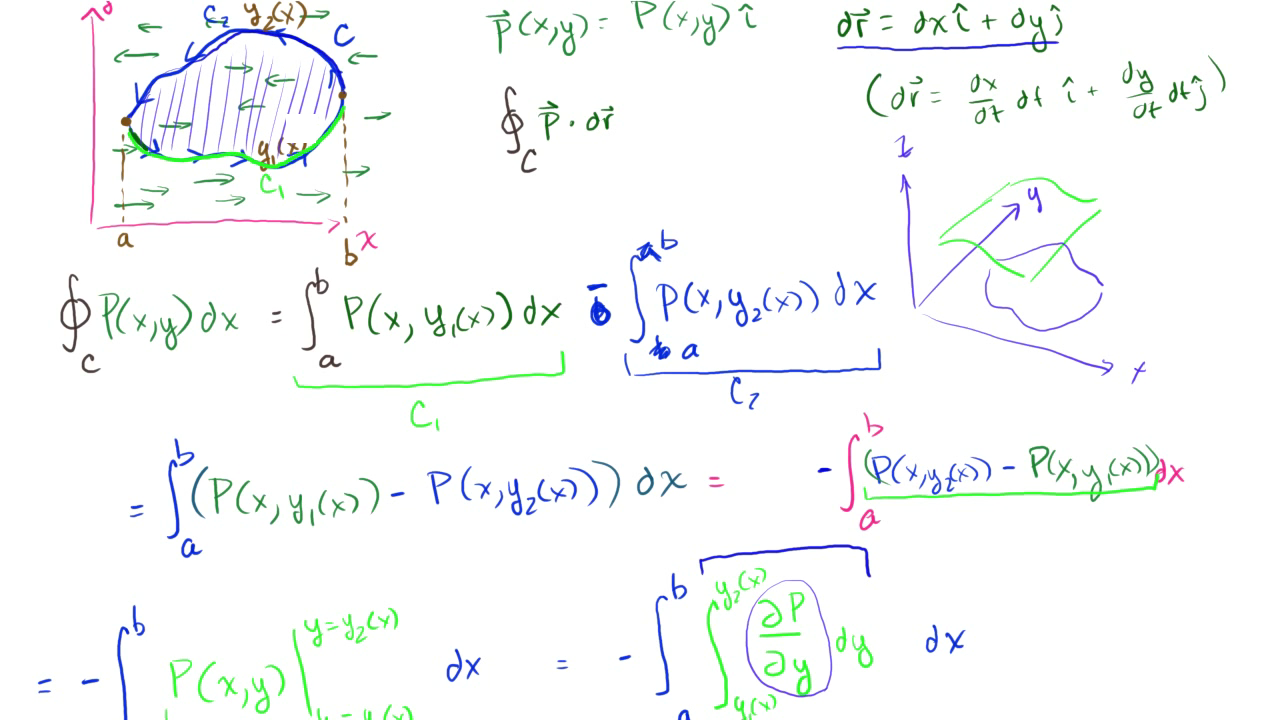 C₂ y₂(x)
C
y₁(x)
C₁
a
b
x
p⃗(x,y) = P(x,y) î
dr⃗ = dx î + dy ĵ
(dr⃗ = dx/dt dt î + dy/dt dt ĵ)
∮_C p⃗ · dr⃗
z
y
x
∮_C P(x,y) dx = ∫_a^b P(x, y₁(x)) dx - ∫_a^b P(x, y₂(x)) dx
C₁ C₂
= ∫_a^b (P(x, y₁(x)) - P(x, y₂(x))) dx = - ∫_a^b (P(x, y₂(x)) - P(x, y₁(x))) dx
= - ∫^b P(x,y) |^{y = y₂(x)}_{y = y₁(x)} dx = - ∫_a^b ∫_{y₁(x)}^{y₂(x)} ∂P/∂y dy dx